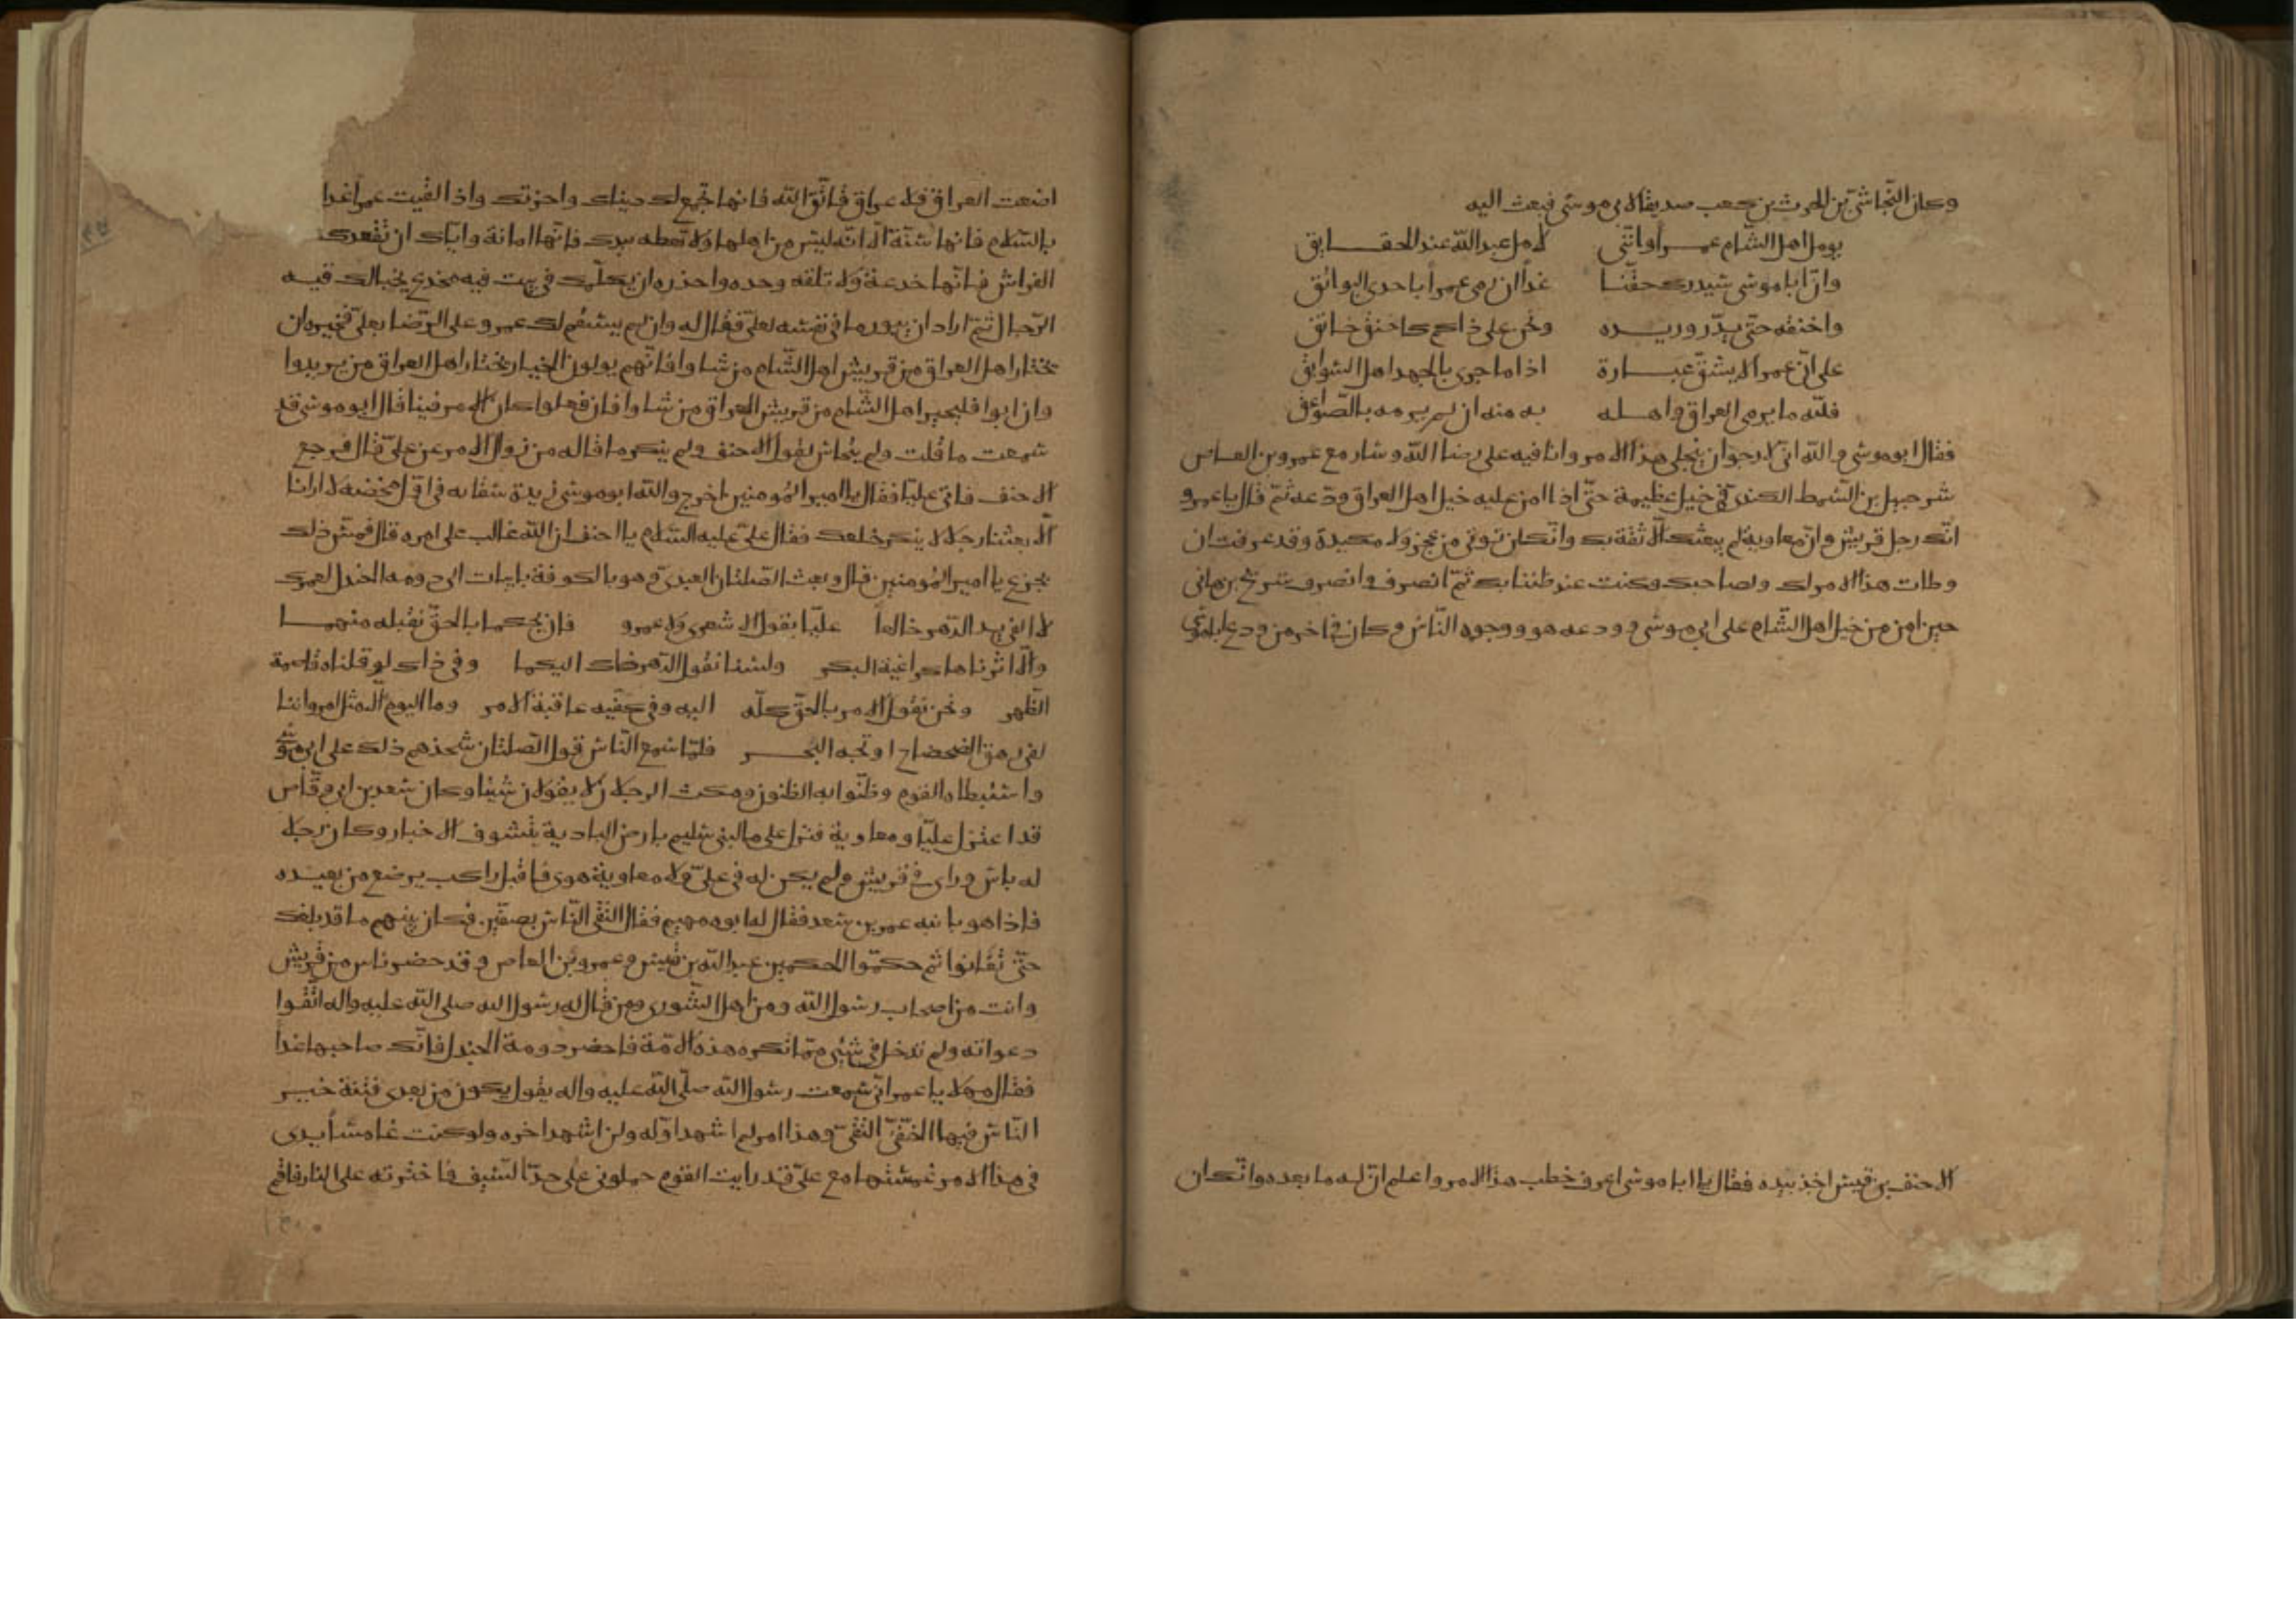 وكان النجاشي بن الحرث بن كعب صديقا لابي موسى فبعث اليه
يومل اهل الشام عمرا وانني لامل عبد الله عند الحقايق
وان ابا موسى سيدرك حقنا غدا ان رمى عمرا باحدى البوائق
واخنقه حتى يدر وريده ونحن على ذاكم كاحنق حانق
على ان عمرا لا يشق غباره اذا ما جرى بالجهد اهل السوابق
فلله ما يرمى العراق واهله به منه ان لم يرمه بالصواعق
فقال ابو موسى والله اني لارجو ان ينجلي هذا الامر وانا فيه على رضا الله وسار مع عمرو بن العاص
شرحبيل بن السمط الكندي في خيل عظيمة حتى اذا امن عليه خيل اهل العراق ودعه ثم قال يا عمرو
انك رجل قريش وان معاوية لم يبعثك الا ثقة بك وانك لن تؤتى من عجز ولا مكيدة وقد عرفت ان
وطات هذا الامر لك ولصاحبك فكنت عند ظننا بك ثم انصرف وانصرف شريح بن هاني
حين امن من خيل اهل الشام على ابي موسى وودعه هو ووجوه الناس وكان في اخر من ودع ابا موسى
الاحنف بن قيس اخذ بيده فقال يا ابا موسى اعرف خطب هذا الامر واعلم ان له ما بعده وانك ان
اضعت العراق فلا عراق فاتق الله فانها تجمع لك دنياك واخرتك واذا لقيت عمرا غدا
بالسلام فانها سنة الا انه ليس من اهلها ولا تعطه بيدك فانها امانة واياك ان تقعدك
الفراش فانها خدعة ولا تلقه وحده واحذره ان يكلمك في بيت فيه مخدع يخبا لك فيه
الرجال ثم اراد ان يبور ما في نفسه لعلي فقال له وان لم يستقم لك عمرو على الرضا بعلي فخيره ان
يختار اهل العراق من قريش اهل الشام من شاوا فانهم يولون الخيار يختار اهل العراق من يريدوا
وان ابوا فليخير اهل الشام من قريش العراق من شاوا فان فعلوا كان الامر فينا قال ابو موسى قد
سمعت ما قلت ولم يتحاش لقول الاحنف ولم ينكر ما قاله من زوال الامر عن علي قال فرجع
الاحنف فاتى عليا فقال يا امير المومنين اخرج والله ابو موسى زبدة سقايه في اول مخضه لا ارانا
الا بعثنا رجلا لا ينكر خلعك فقال علي عليه السلام يا احنف ان الله غالب على امره قال فمن ذلك
نجزع يا امير المومنين قال وبعث الصلتان العبدي وهو بالكوفة بابيات الى دومه الجندل لعمرك
لا الفى يد الدهر خالعا عليا بقول الاشعري ولا عمرو فان يحكما بالحق نقبله منهما
والا اثرناها كراغية البكر ولسنا نقول الدهر ذاك اليكما وفي ذاك لو قلناه قاصمة
الظهر ونحن نقول الامر بالحق كله اليه وفي كفيه عاقبة الامر وما اليوم الا مثل امس واننا
لفي رهق الضحضاح او لجه البحر فلما سمع الناس قول الصلتان شحذهم ذلك على ابي موسى
واستبطاه القوم وظنوا به الظنون ومكث الرجلان لا يقولان شيئا وكان سعد بن ابي وقاص
قد اعتزل عليا ومعاوية فنزل على ما لبني سليم بارض البادية يتشوف الاخبار وكان رجلا
له باس وراى في قريش ولم يكن له في علي ولا معاوية هوى فاقبل راكب يوضع من بعيده
فاذا هو بابنه عمر بن سعد فقال له ابوه مهيم فقال التقى الناس بصفين فكان بينهم ما قد بلغك
حتى تفانوا ثم حكموا الحكمين عبد الله بن قيس وعمرو بن العاص وقد حضر ناس من قريش
وانت من اصحاب رسول الله ومن اهل الشورى ومن قال له رسول الله صلى الله عليه واله اتقوا
دعواته ولم تدخل في شيء مما تكره هذه الامة فاحضر دومة الجندل فانك صاحبها غدا
فقال مهلا يا عمر اني سمعت رسول الله صلى الله عليه واله يقول يكون من بعدي فتنة خير
الناس فيها الخفي التقي وهذا امر لم اشهد اوله ولن اشهد اخره ولو كنت غامسا يدى
في هذا الامر غمستها مع علي قد رايت القوم حملوني على حد السيف فاخترته على النار فاقم